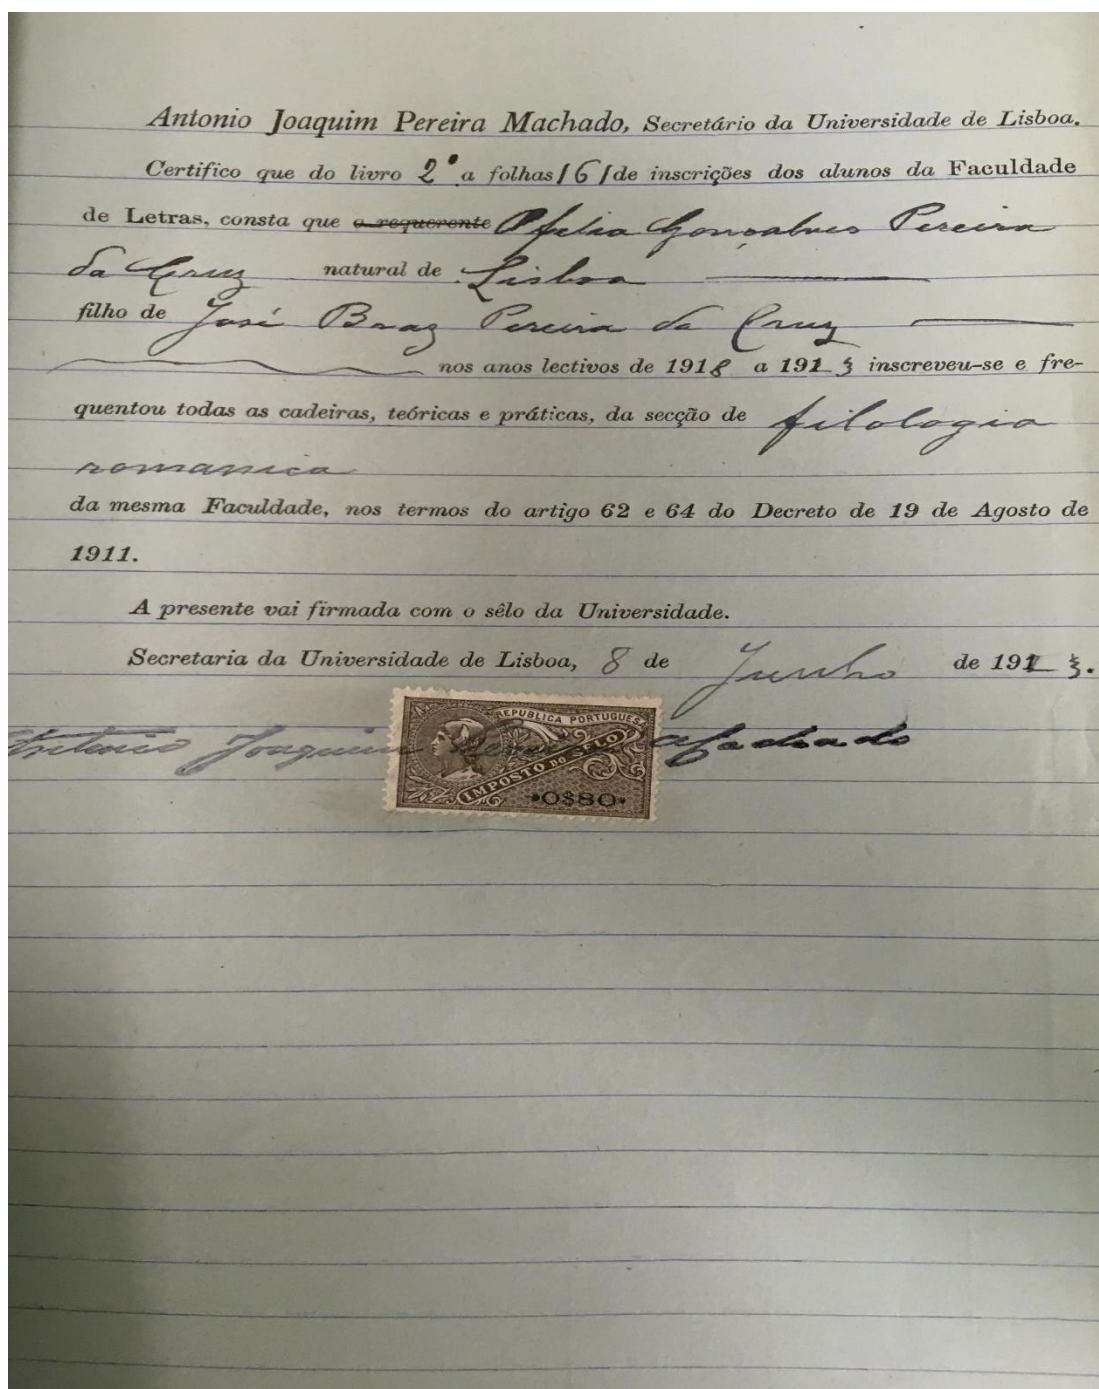 Antonio Joaquim Pereira Machado, Secretário da Universidade de Lisboa.
Certifico que do livro 2º a folhas 161 de inscrições dos alunos da Faculdade
de Letras, consta que o requerente Ofelia Gonçalves Pereira
da Cruz natural de Lisboa
filho de José Braz Pereira da Cruz
nos anos lectivos de 1918 a 1923 inscreveu-se e fre-
quentou todas as cadeiras, teóricas e práticas, da secção de filologia
romanica
da mesma Faculdade, nos termos do artigo 62 e 64 do Decreto de 19 de Agosto de
1911.
A presente vai firmada com o sêlo da Universidade.
Secretaria da Universidade de Lisboa, 8 de Junho de 1923.
Antonio Joaquim Pereira Machado
REPUBLICA PORTUGUESA
IMPOSTO DO SELO
0$80